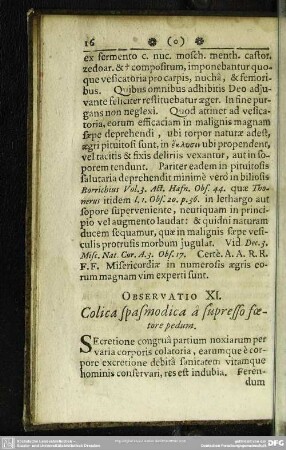 16 ❀ (o) ❀
ex fermento c. nuc. mosch. menth. castor.
zedoar. &† compositum, imponebantur quo-
que vesicatoria pro carpis, nuchâ, & femori-
bus. Quibus omnibus adhibitis Deo adju-
vante feliciter restituebatur æger. In fine pur-
gans non neglexi. Quod attinet ad vesica-
toria, eorum efficaciam in malignis magnam
sæpe deprehendi, ubi torpor naturæ adest,
ægri pituitosi sunt, in ubi propendent,
vel tacitis & fixis deliriis vexantur, aut in so-
porem tendunt. Pariter eadem in pituitosis
salutaria deprehendit minimè verò in biliosis
Borrichius Vol. 3. Act. Hafn. Obs. 44. quæ Tho-
nerus itidem l. 1. Obs. 20. p. 36. in lethargo aut
sopore superveniente, neutiquam in princi-
pio vel augmento laudat: & quidni naturam
ducem sequamur, quæ in malignis sæpe vesi-
culis protrusis morbum jugulat. Vid Dec. 3.
Misc. Nat. Cur. A. 3. Obs. 17. Certè. A. A. R. R.
F. F. Misericordiæ in numerosis ægris eo-
rum magnam vim experti sunt.
OBSERVATIO XI.
Colica spasmodica à supresso fœ-
tore pedum.
SEcretione congruâ partium noxiarum per
varia corporis colatoria, earumque è cor-
pore excretione debitâ sanitatem vitamque
hominis conservari, res est indubia. Feren-
dum